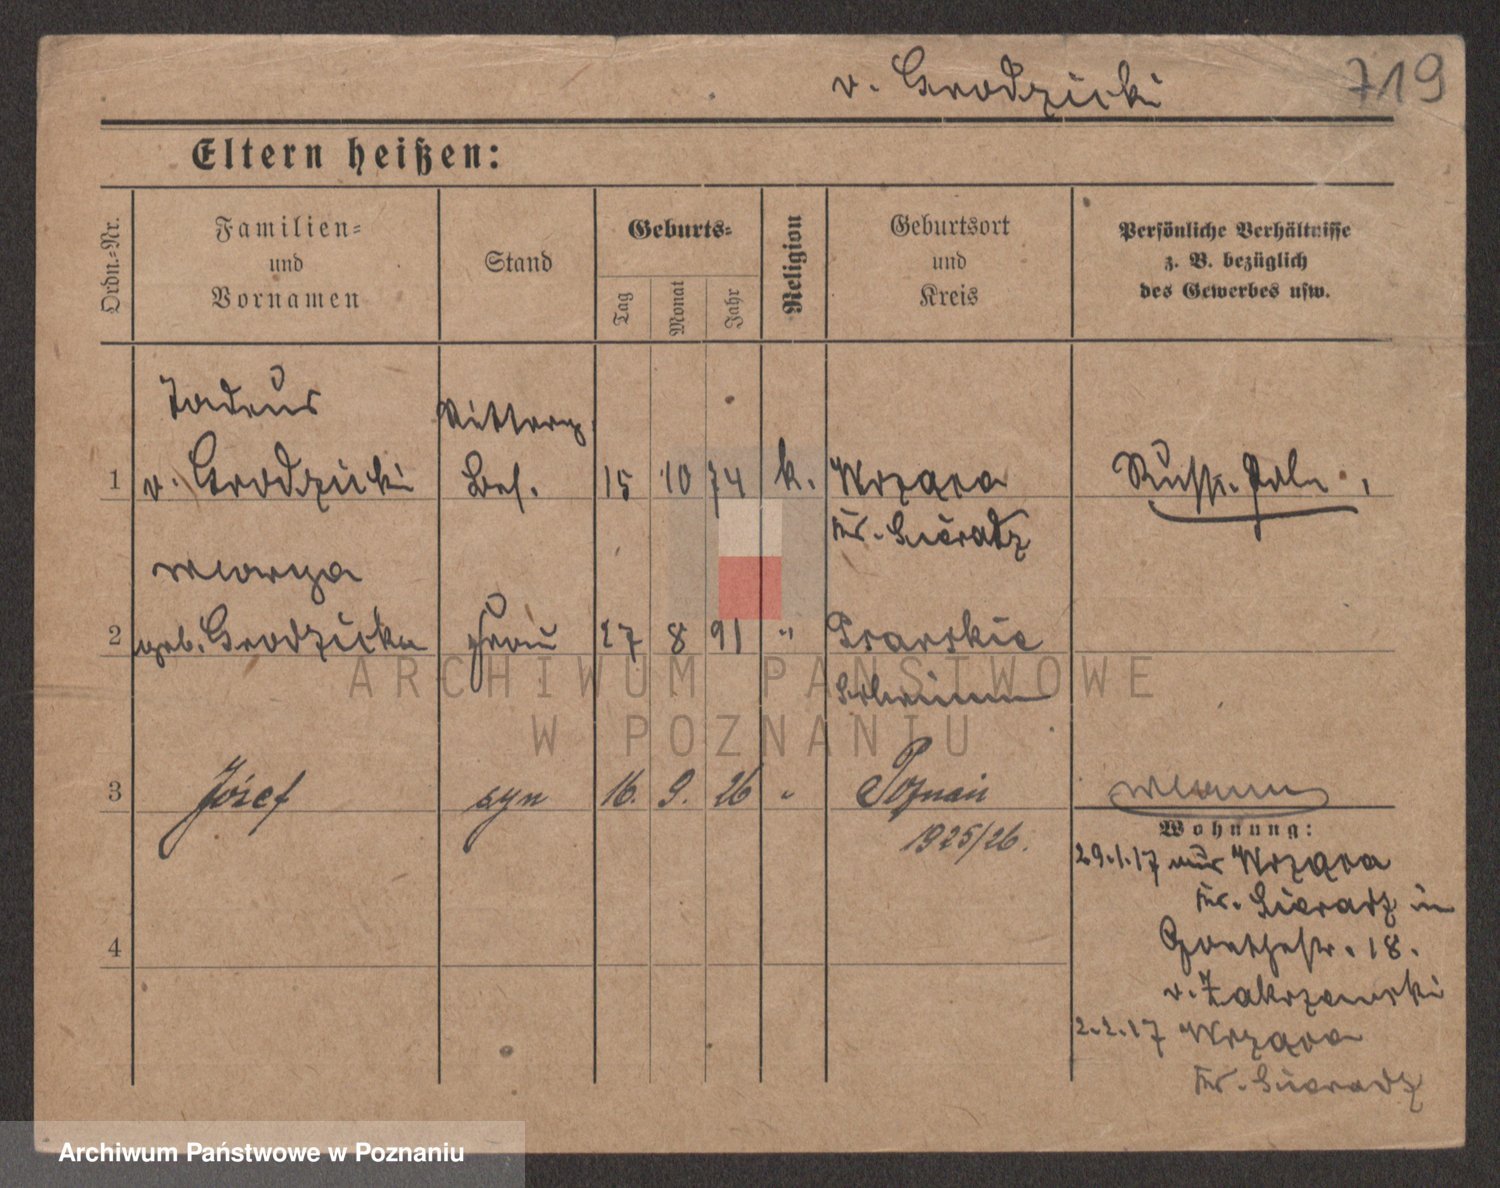 v. Grodzicki
719
Eltern heißen:
Ordn.-Nr.
Familien-
und
Vornamen
Stand
Geburts-
Tag
Monat
Jahr
Religion
Geburtsort
und
Kreis
Persönliche Verhältnisse
z. B. bezüglich
des Gewerbes usw.
Tadeus
Ritterg.
1 v. Grodzicki Bes. 15 10 74 k. Wrzqca Russ. Poln.
Kr. Sieradz
Marya
2 geb. Grodzicka Frau 27 8 91 " Psarskie
Schrimm
3 Józef syn 16. 9. 26 " Poznań
1925/26.
Wohnung:
29.1.17 aus Wrzqca
Kr. Sieradz in
4
Goethestr. 18.
v. Zakrzewski
2.2.17 Wrzqca
Kr. Sieradz
ARCHIWUM PAŃSTWOWE
W POZNANIU
Archiwum Państwowe w Poznaniu